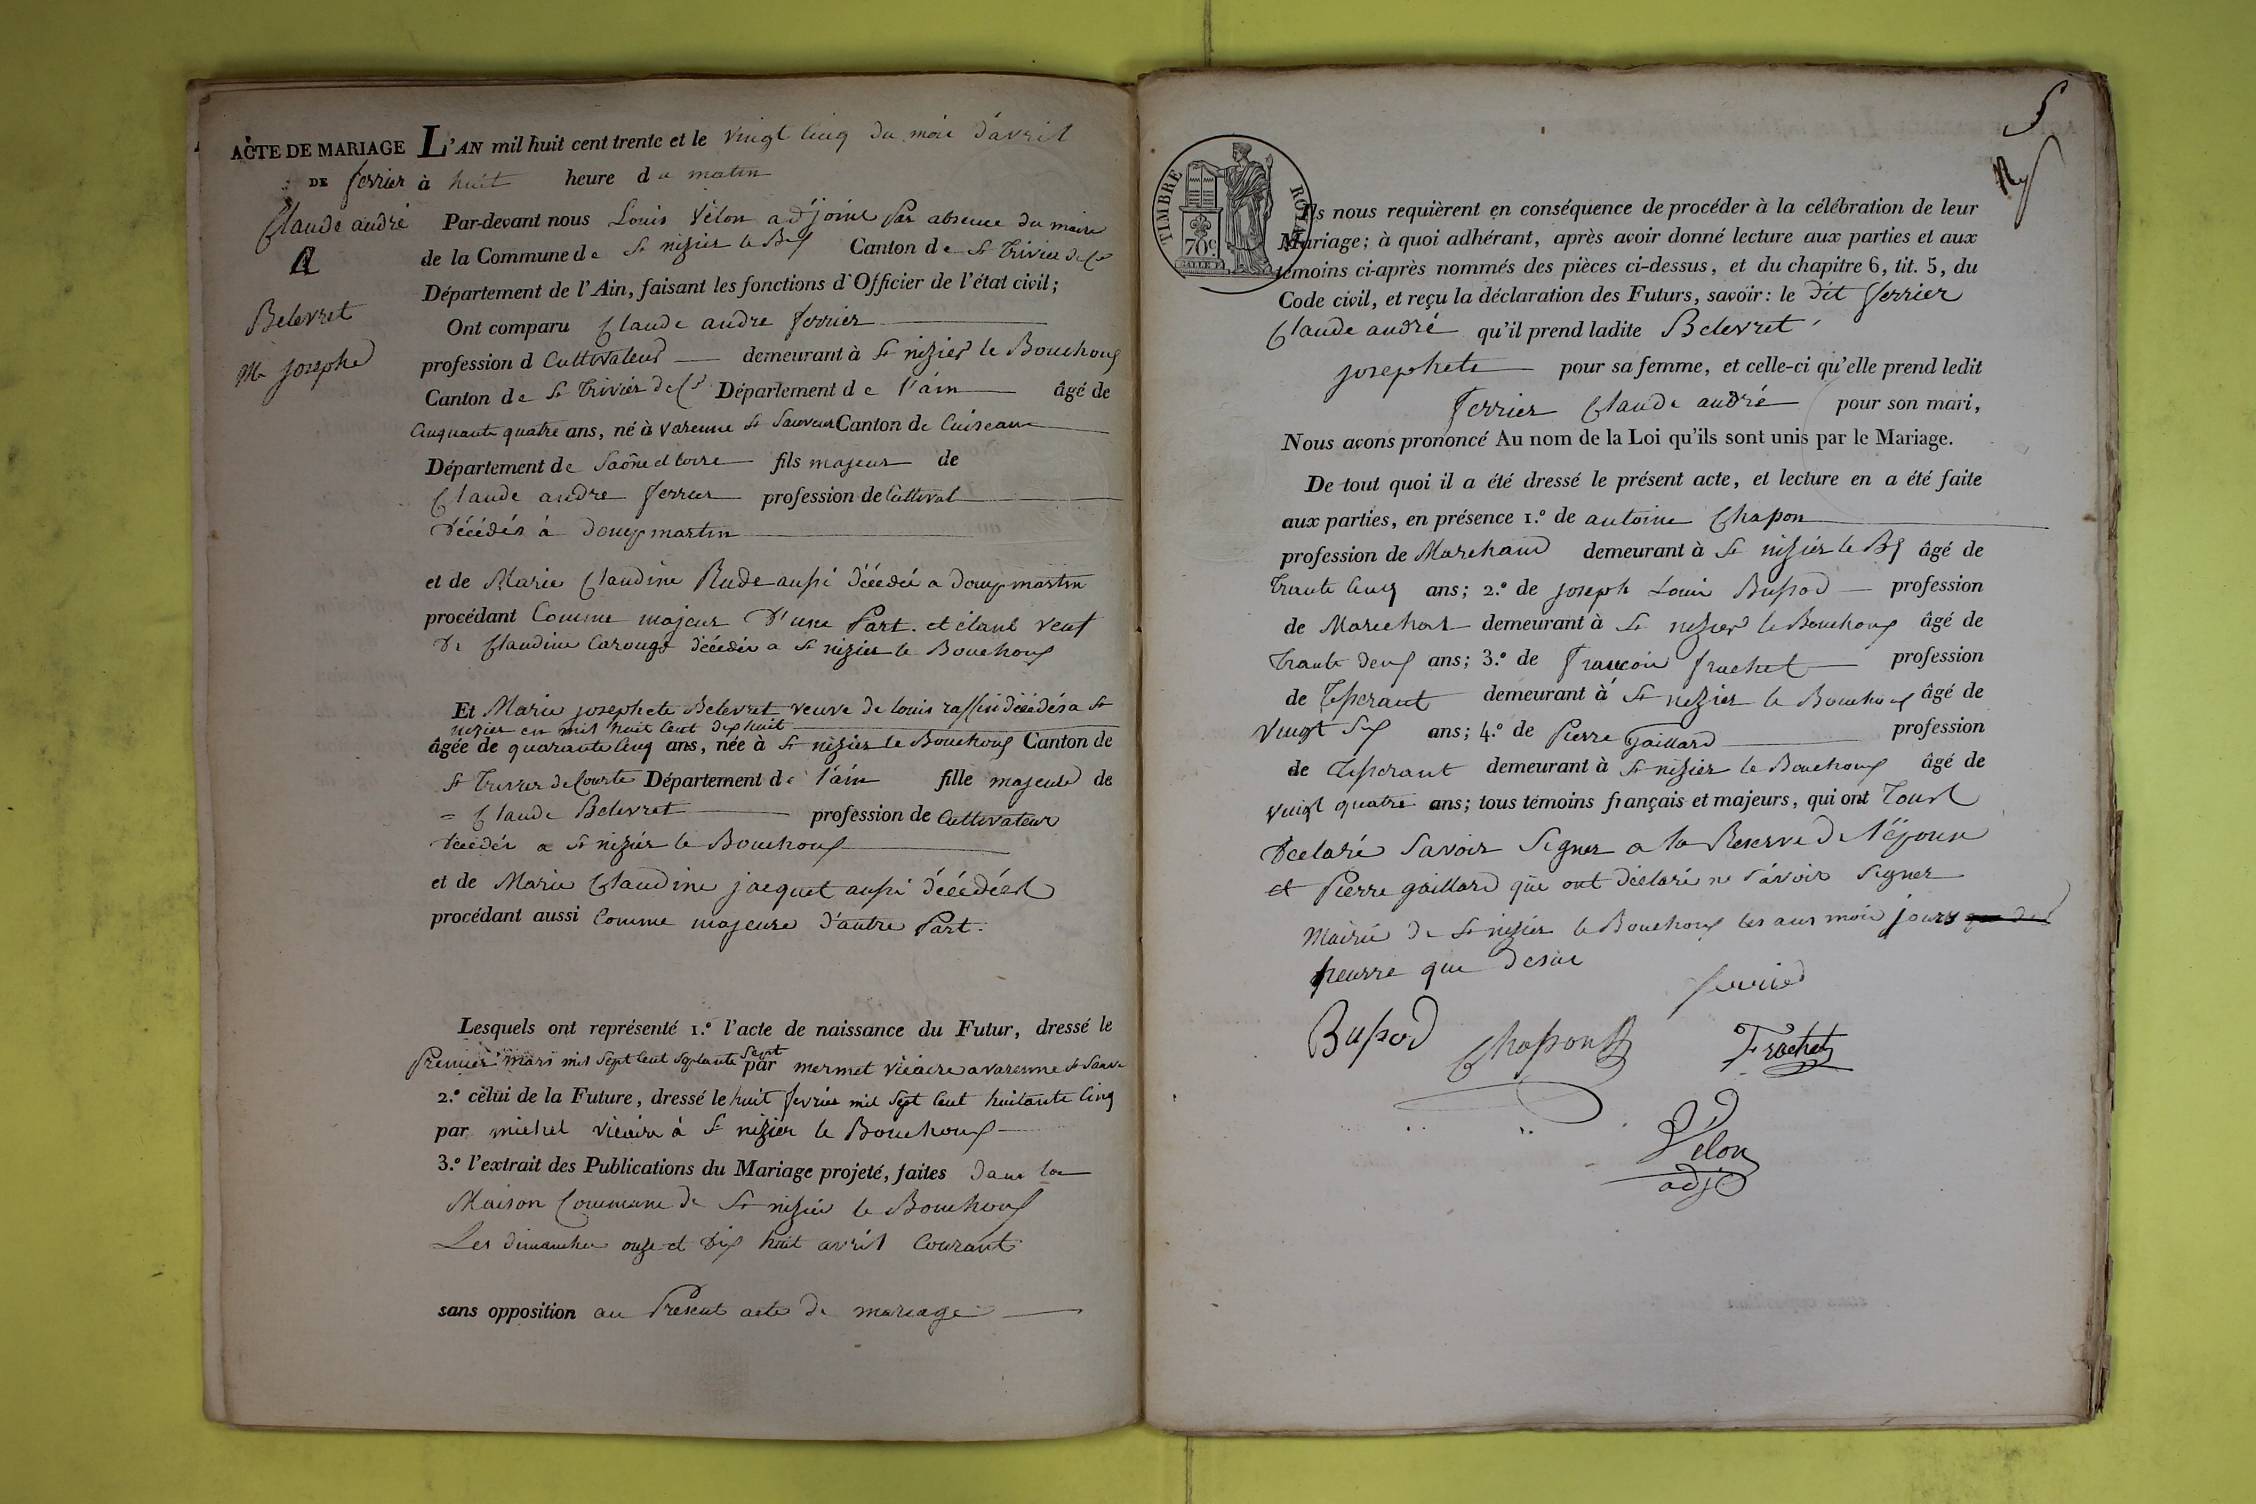 ACTE DE MARIAGE L'AN mil huit cent trente et le vingt cinq du mois d'avril
DE ferrier à huit heure du matin
Claude andré
&
Belevret
Mie josephe
Par-devant nous Louis Vélon adjoint par absence du maire
de la Commune de St nizier le Bx Canton de St Trivier de Cs
Département de l'Ain, faisant les fonctions d'Officier de l'état civil;
Ont comparu Claude andre ferrier
profession d Cultivateur demeurant à St nizier le Bouchoux
Canton de St Trivier de Cs Département de l'ain âgé de
Cinquante quatre ans, né à varenne St Sauveur Canton de Cuiseaux
Département de Saône et loire fils majeur de
Claude andre ferrier profession de Cultivat
décédés à domp martin
et de Marie Claudine Rude aussi décédée a domp martin
procédant Comme majeur d'une Part. et étant veuf
de Claudine Carouge décédée a St nizier le Bouchoux
Et Marie josephete Belevret veuve de louis raffin décédés a St
nizier en mil huit cent dix huit
âgée de quarante cinq ans, née à St nizier le Bouchoux Canton de
St Trivier de Courte Département de l'ain fille majeure de
= Claude Belevret profession de Cultivateur
décédés a St nizier le Bouchoux
et de Marie Claudine jacquet aussi décédées
procédant aussi Comme majeure d'autre Part.
Lesquels ont représenté 1.º l'acte de naissance du Futur, dressé le
Premier mars mil sept cent septante sept par mermet vicaire a varenne St Sauv
2.º celui de la Future, dressé le huit fevrier mil sept cent huitante cinq
par michel vicaire à St nizier le Bouchoux
3.º l'extrait des Publications du Mariage projeté, faites dans la
Maison Commune de St nizier le Bouchoux
Les dimanches onze et dix huit avril Courant
sans opposition au Present acte de mariage
5
TIMBRE ROYAL
70c
Ils nous requièrent en conséquence de procéder à la célébration de leur
Mariage; à quoi adhérant, après avoir donné lecture aux parties et aux
témoins ci-après nommés des pièces ci-dessus, et du chapitre 6, tit. 5, du
Code civil, et reçu la déclaration des Futurs, savoir: le dit ferrier
Claude andré qu'il prend ladite Belevret
josephete pour sa femme, et celle-ci qu'elle prend ledit
ferrier Claude andré pour son mari,
Nous avons prononcé Au nom de la Loi qu'ils sont unis par le Mariage.
De tout quoi il a été dressé le présent acte, et lecture en a été faite
aux parties, en présence 1.º de antoine Chapon
profession de Marchand demeurant à St nizier le Bx âgé de
Trante cinq ans; 2.º de joseph Louis Bussod profession
de Marechal demeurant à St nizier le Bouchoux âgé de
Trante deux ans; 3.º de françois frachet profession
de Tisserant demeurant à St nizier le Bouchoux âgé de
vingt six ans; 4.º de Pierre Gaillard profession
de Tisserant demeurant à St nizier le Bouchoux âgé de
vingt quatre ans; tous témoins français et majeurs, qui ont Tous
declaré Savoir Signer a la Reserve de l'épouse
et Pierre gaillard qui ont déclaré ne Savoir Signer
Mairie de St nizier le Bouchoux les ans mois jours
heurre que desus
ferrier
Bussod
Chapon
Frachet
Vélon
adjt